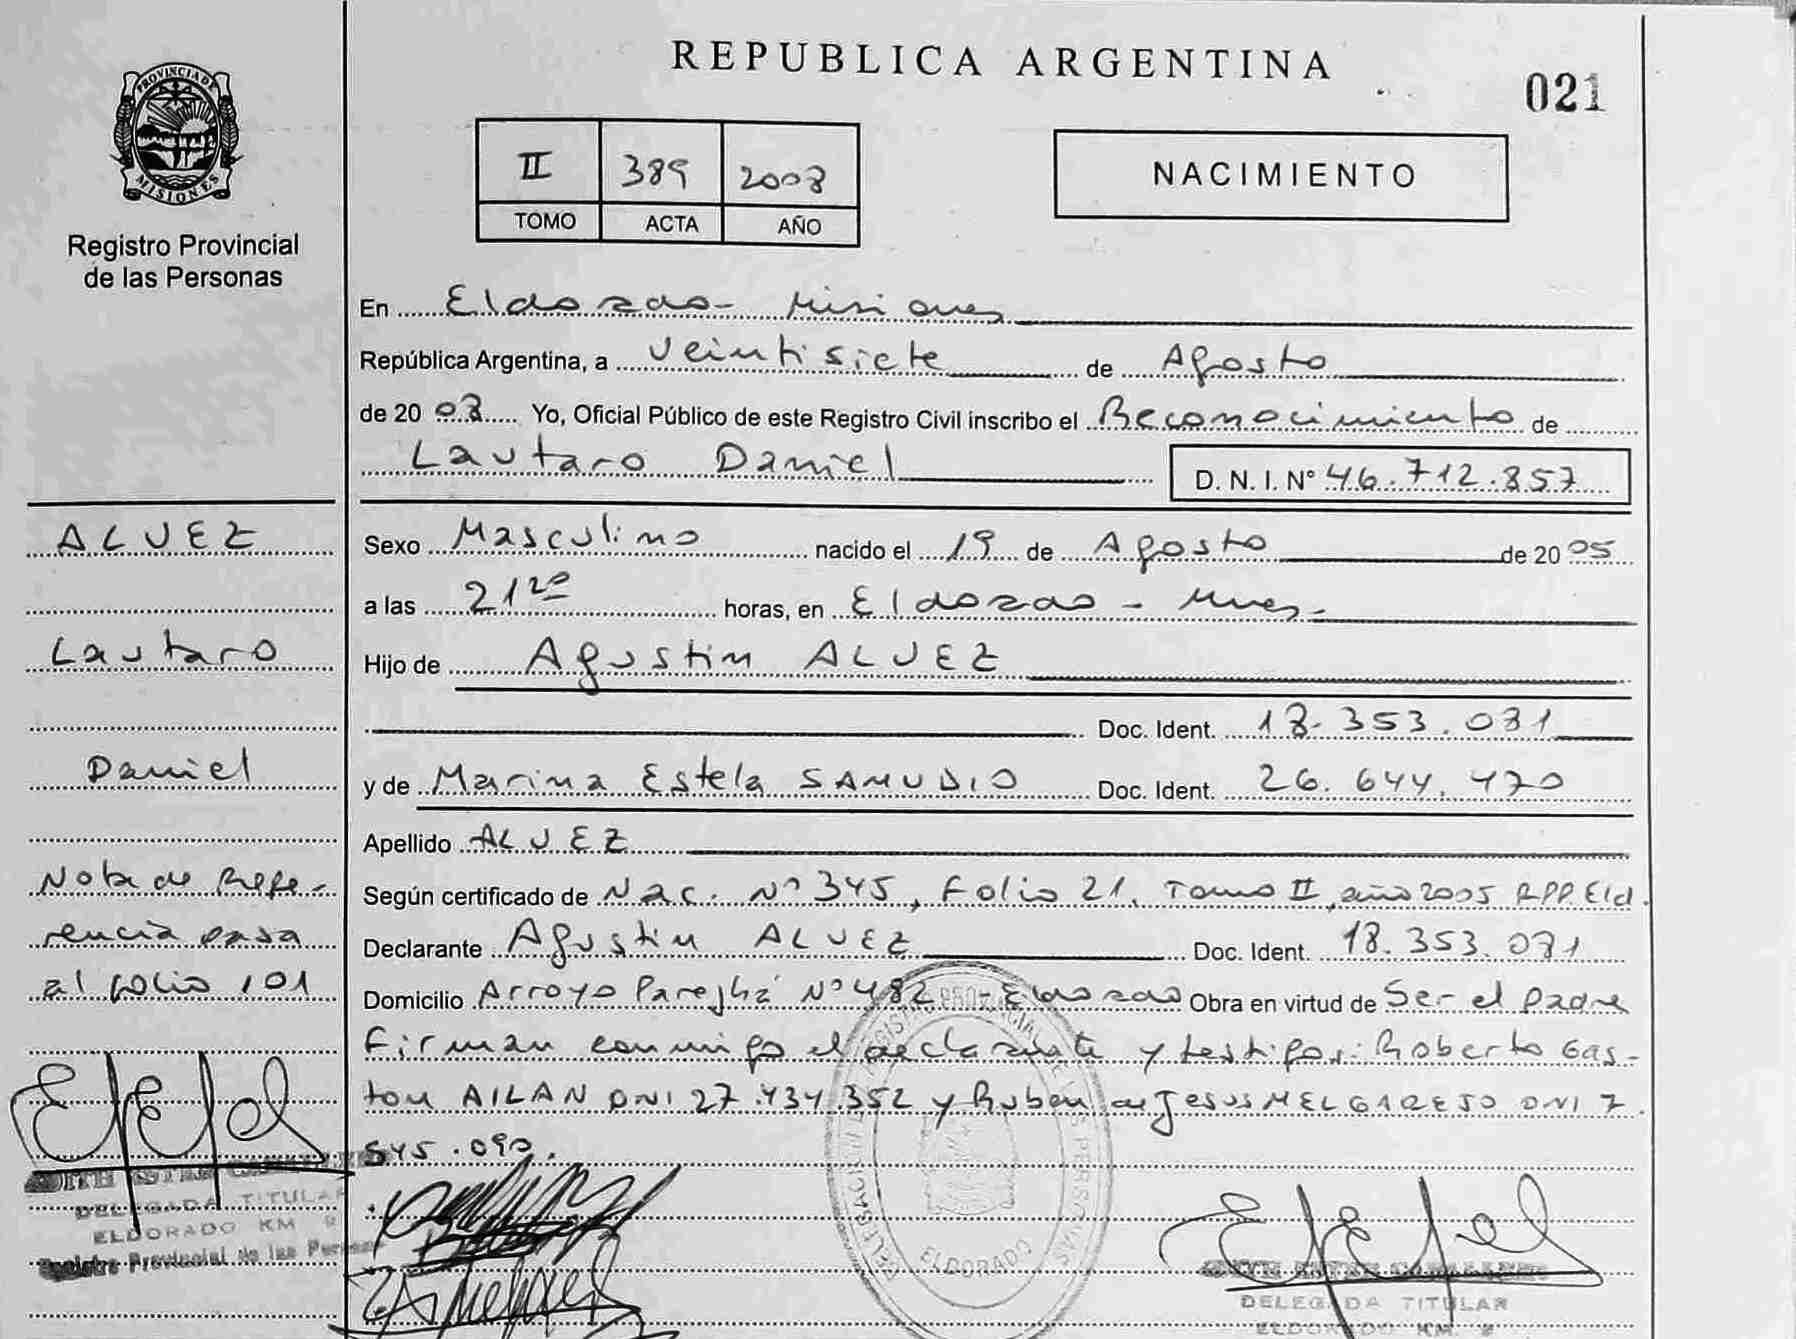 PROVINCIA DE
MISIONES
Registro Provincial
de las Personas
REPUBLICA ARGENTINA
021
II 389 2008
TOMO ACTA AÑO
NACIMIENTO
En Eldorado - Misiones
República Argentina, a Veintisiete de Agosto
de 20 08 Yo, Oficial Público de este Registro Civil inscribo el Reconocimiento de
Lautaro Daniel D. N. I. Nº 46.712.857
ALVEZ
Lautaro
Daniel
Nota de Refe-
rencia pasa
al folio 101
Sexo Masculino nacido el 19 de Agosto de 20 05
a las 21 horas, en Eldorado - Mnes.
Hijo de Agustin ALVEZ
Doc. Ident. 18.353.081
y de Marina Estela SAMUDIO Doc. Ident. 26.644.470
Apellido ALVEZ
Según certificado de Nac. Nº 345, Folio 21, Tomo II, año 2005 RPP. Eld.
Declarante Agustin ALVEZ Doc. Ident. 18.353.081
Domicilio Arroyo Nº 482 - Eldorado Obra en virtud de Ser el padre
Firman conmigo el declarante y testigos: Roberto Gas-
ton AILAN DNI 27.434.352 y Ruben de Jesus MELGAREJO DNI 7.
545.090.
DELEGADA TITULAR
ELDORADO KM
Registro Provincial de las Person
ELDORADO
DELEGADA TITULAR
ELDORADO KM.